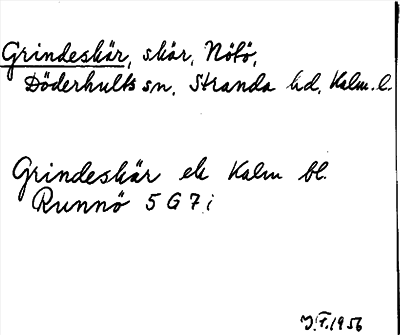 Grindeskär, skär, Nötö,
Döderhults sn. Stranda hd, Kalm. l.
Grindeskär ek Kalm bl.
Runnö 5 G 7 i
1956